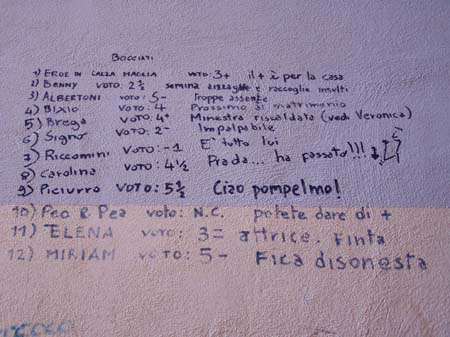 Bocciati
1) EROE IN CALZA MAGLIA VOTO: 3+ il + è per la casa
2) BENNY VOTO: 2½ semina zizzaglie e raccoglie insulti
3) ALBERTONI VOTO: 5- Troppe assente
4) BIXIO VOTO: 4 Prossimo al matrimonio
5) Brega VOTO: 4+ Minestra riscaldata (vedi Veronica)
6) Signo VOTO: 2- Impalpabile
7) Riccomini VOTO: -1 E' tutto lui
8) Carolina VOTO: 4½ Prada... ha passato!!!
9) Piciurro VOTO: 5½ Ciao pompelmo!
10) Peo & Pea voto: N.C. potete dare di +
11) ELENA voto: 3= attrice. Finta
12) MIRIAM voto: 5- Fica disonesta